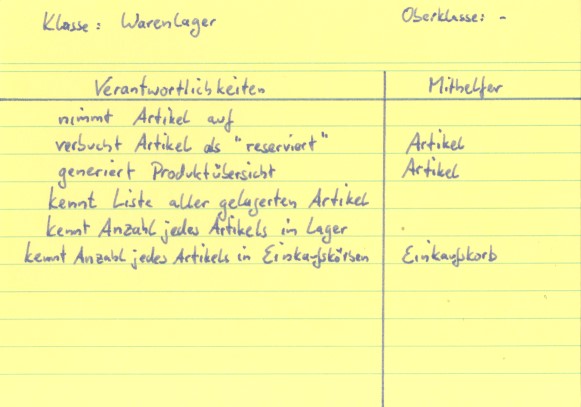 Klasse: Warenlager Oberklasse: -
Verantwortlichkeiten Mithelfer
nimmt Artikel auf
verbucht Artikel als "reserviert" Artikel
generiert Produktübersicht Artikel
kennt Liste aller gelagerten Artikel
kennt Anzahl jedes Artikels in Lager
kennt Anzahl jedes Artikels in Einkaufskörben Einkaufskorb